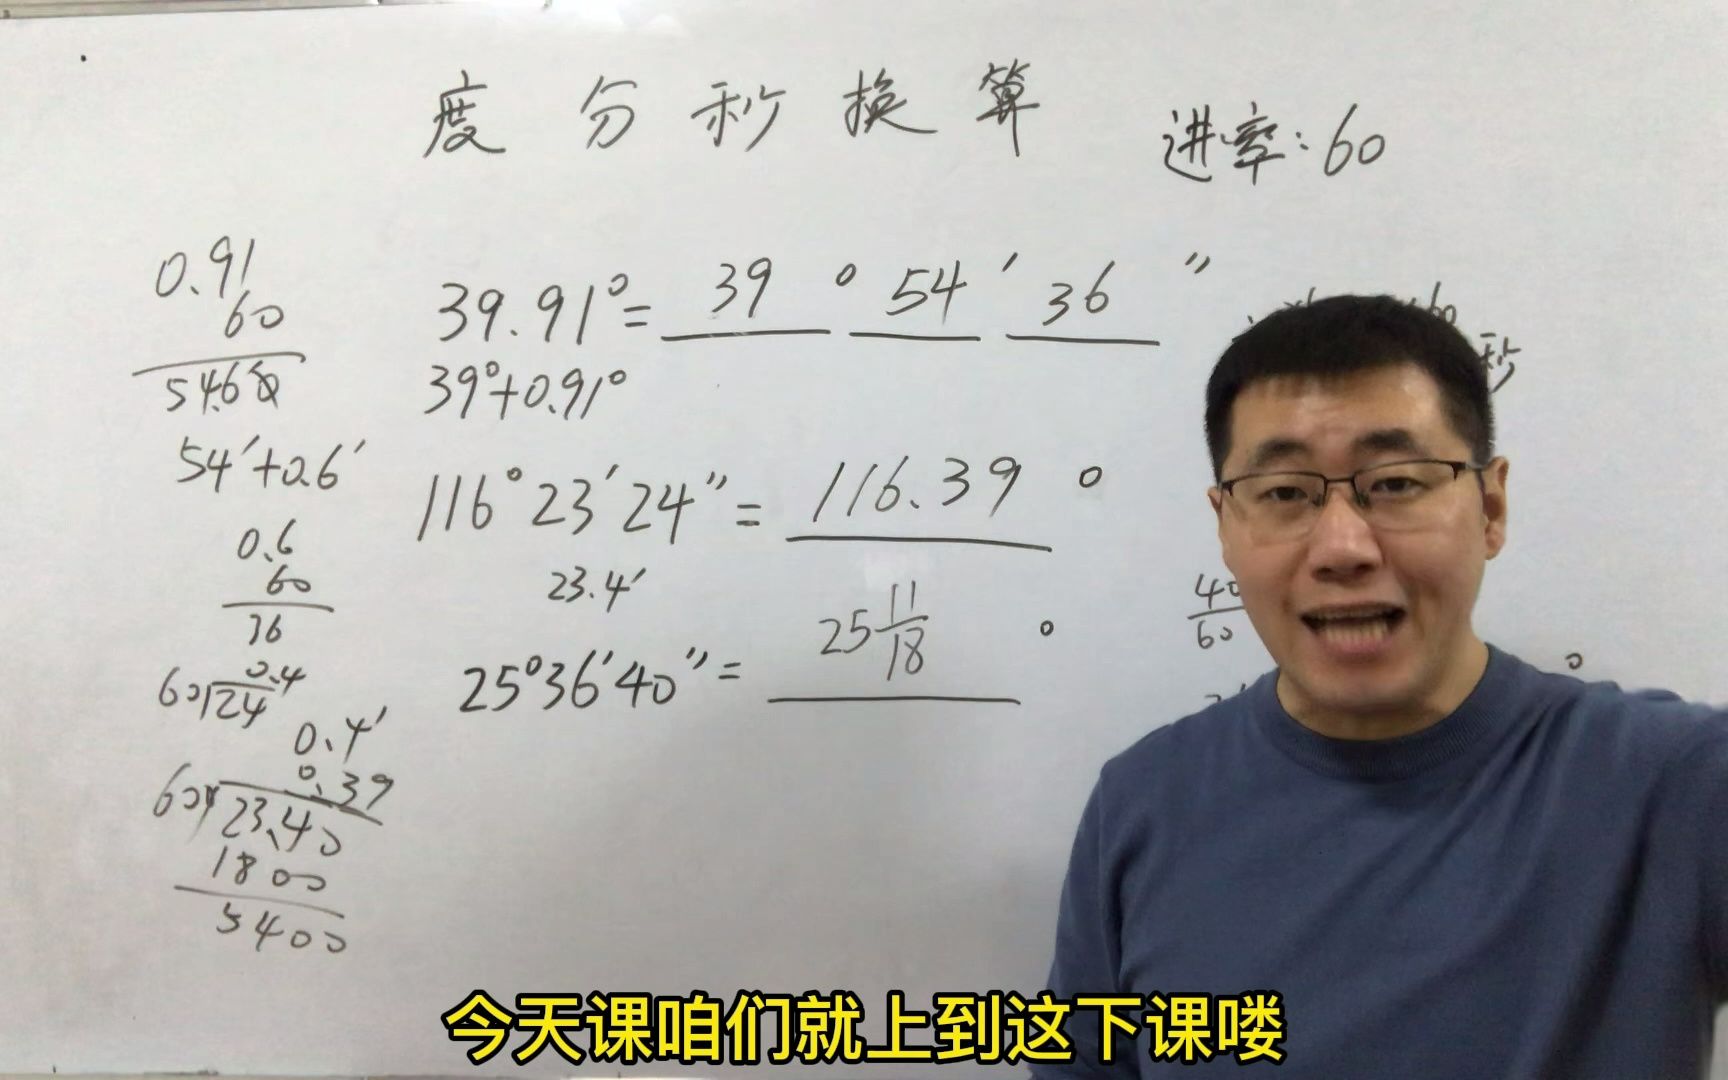 度分秒换算
进率:60
0.91
60
54.60
54′+0.6′
0.6
60
36
0.4
60 24
0.4′
0.39
60 23.40
1800
5400
39.91°= 39 ° 54 ′ 36 ″
39°+0.91°
116°23′24″= 116.39 °
23.4′
25°36′40″= 25 11/18 °
秒
40
60
今天课咱们就上到这下课喽